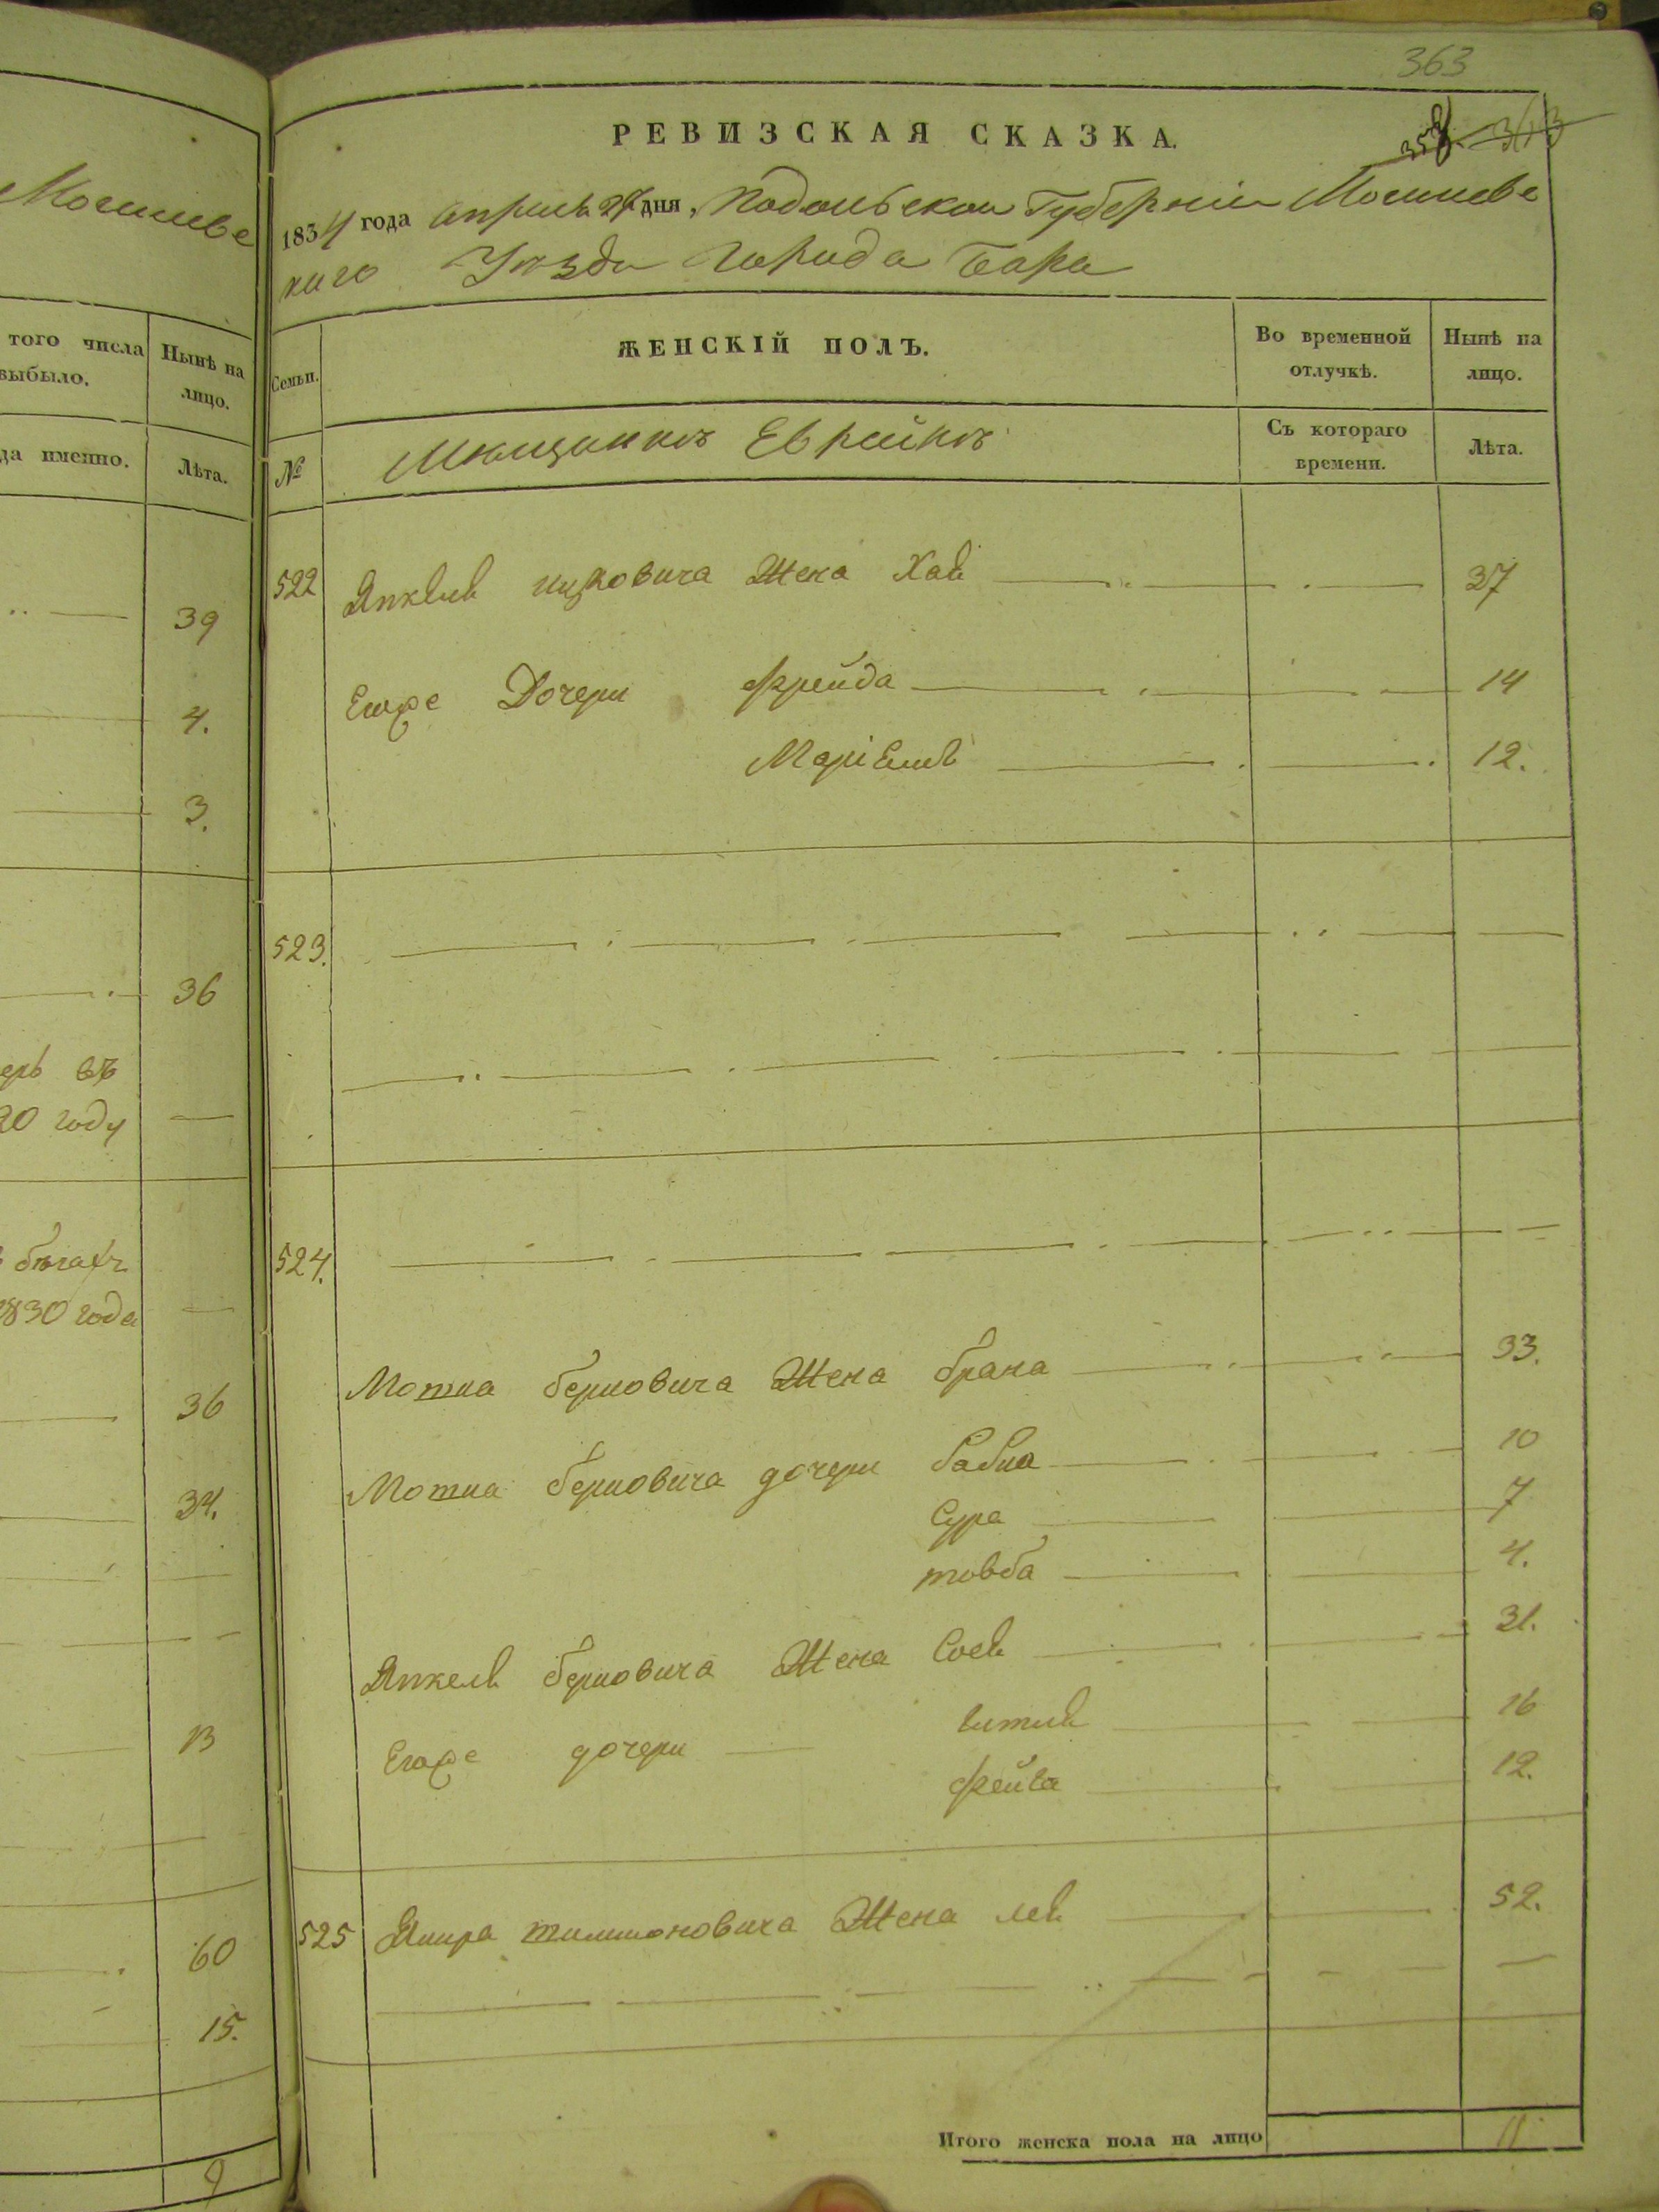 363
РЕВИЗСКАЯ СКАЗКА.
357 363
1834 года апреля 27 дня, Подольской Губерніи Могилевс
каго Уѣзда Города Бара
Семьи.
ЖЕНСКІЙ ПОЛЪ.
Во временной отлучкѣ.
Нынѣ на лицо.
№
Мещанки Еврейки
Съ котораго времени.
Лѣта.
522 Янкеля ицковича Жена Хая 37
Егоже Дочери фрейда 14
Маріемъ 12.
523.
524.
Мотиа берковича Жена брана 33.
Мотиа берковича дочери бабиа 10
Сура 7
товба 4.
Янкеля берковича Жена Сося 31.
Егоже дочери 16
фейга 12.
525 Жена лея 52.
Итого женска пола на лицо 11
Могилевс
того числа выбыло.
Нынѣ на лицо.
да именно.
Лѣта.
39
4.
3.
36
ерь въ
20 году
бѣгахъ
1830 года
36
34.
13
60
15.
9